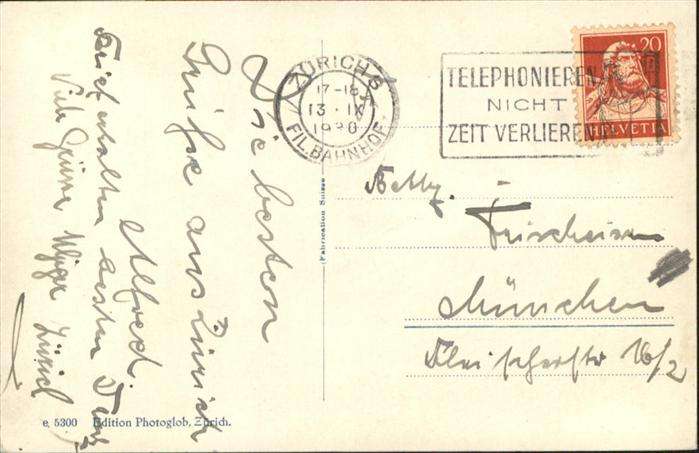 Die besten
Grüße aus Zürich
Alfred.
Brief erhalten besten Dank
Viele Grüsse Zürich
ZÜRICH 8
17-18
13 · IX
1930
FIL.BAHNHOF
TELEPHONIEREN
NICHT
ZEIT VERLIEREN
20
HELVETIA
Betty
München
16/2
Fabrication Suisse
e. 5300 Edition Photoglob, Zürich.